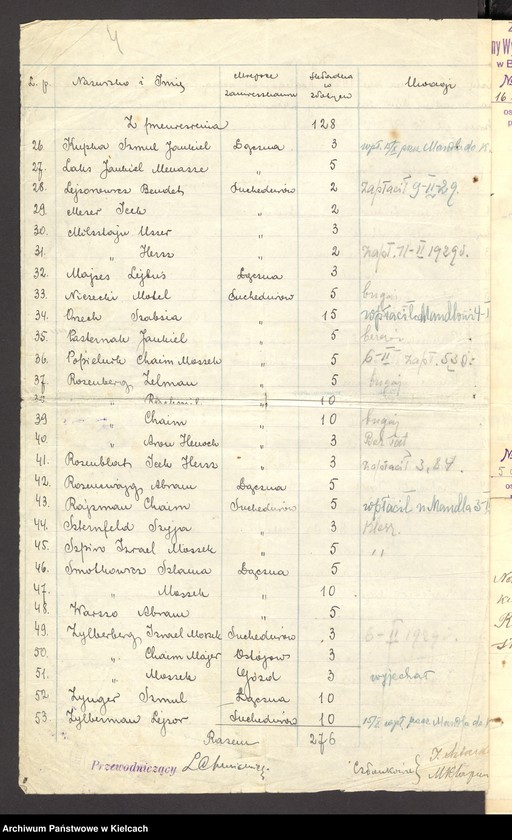 4
L. p. Nazwisko i Imię Miejsce zamieszkania Składka w złotych Uwagi
Z przeniesienia 128
26. Kupka Szmul Jankiel Łączna 3 wpł.
27. Laks Jankiel Menasze " 5
28. Lejzorowicz Bendet Suchedniów 2 zapłacił 9-II-29.
29. Meser Icek " 2
30. Uszer " 3
31. " Hersz " 2 zapł. 11-II 1929 r.
32. Majzes Lejbuś Łączna 3
33. Nisecki Motel Suchedniów 5
34. Orzech Szabsia " 15 wpłacił
35. Pasternak Jankiel " 5
36. Chaim Moszek " 5 6-II zapł.
37. Rozenberg Zelman " 5
38. " " 10
39 " Chaim " 10
40. " Aron Henoch " 3
41. Rozenblat Icek Hersz " 3 zapłacił 3,84.
42. Abram Łączna 5
43. Rajzman Chaim Suchedniów 5 wpłacił
44. Szternfeld Szyja " 3
45. Szpiro Izrael Moszek " 5 "
46. Smolkowicz Szlama Łączna 5
47. " Moszek " 10
48. Warszo Abram " 5
49. Zylberberg Izrael Moszek Suchedniów 3 6-II 1929 r.
50. " Chaim Majer Ostojów 3
51. " Moszek Gózd 3 wyjechał
52. Zynger Szmul Łączna 10
53. Zylberman Lejzor Suchedniów 10 wpł.
Razem 276
Przewodniczący
Archiwum Państwowe w Kielcach